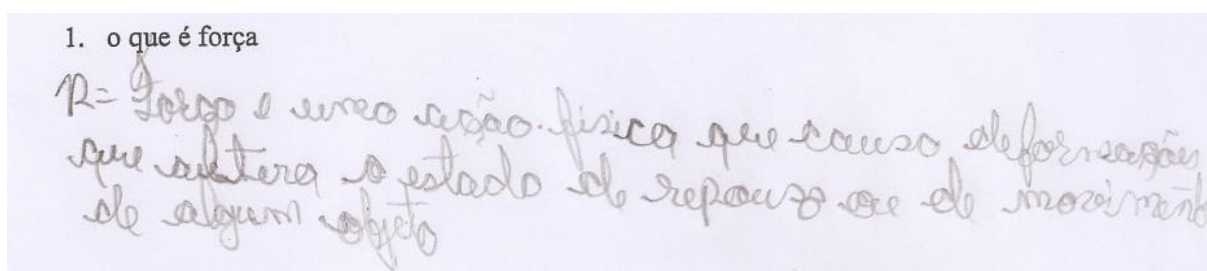 1. o que é força
R= Força e uma ação física que causa deformações
que altera o estado de repouzo ou de movimento
de algum objeto